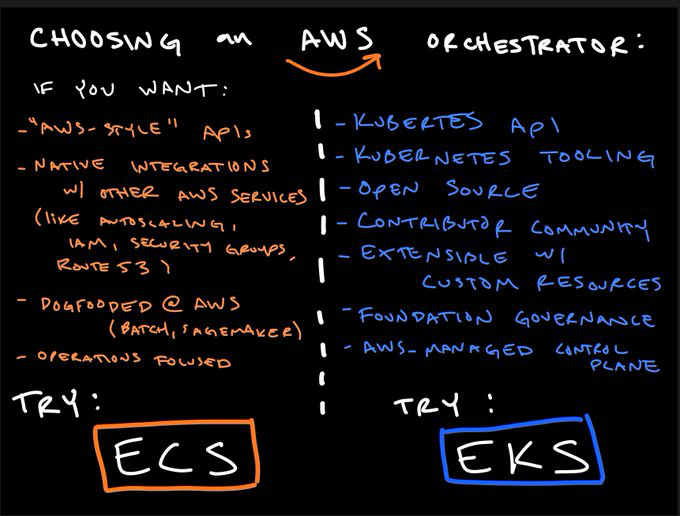 CHOOSING an AWS ORCHESTRATOR:
IF YOU WANT:
- "AWS-STYLE" APIs
- NATIVE INTEGRATIONS
W/ OTHER AWS SERVICES
(LIKE AUTOSCALING,
IAM, SECURITY GROUPS,
ROUTE 53)
- DOGFOODED @ AWS
(BATCH, SAGEMAKER)
- OPERATIONS FOCUSED
TRY:
ECS
- KUBERTES API
- KUBERNETES TOOLING
- OPEN SOURCE
- CONTRIBUTOR COMMUNITY
- EXTENSIBLE W/
CUSTOM RESOURCES
- FOUNDATION GOVERNANCE
- AWS-MANAGED CONTROL
PLANE
TRY:
EKS